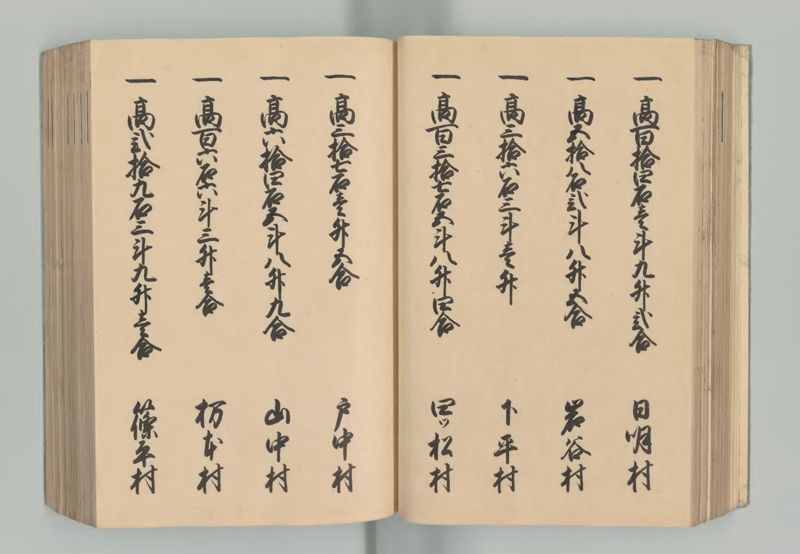 一 高百拾四石壱斗九升弐合 日明村
一 高五拾八石弐斗八升五合 岩谷村
一 高三拾六石三斗壱升 下平村
一 高百三拾七石五斗八升四合 四ツ松村
一 高三拾七石壱升五合 戸中村
一 高六拾四石五斗八升九合 山中村
一 高百六石六斗三升壱合 村
一 高弐拾九石三斗九升壱合 篠平村